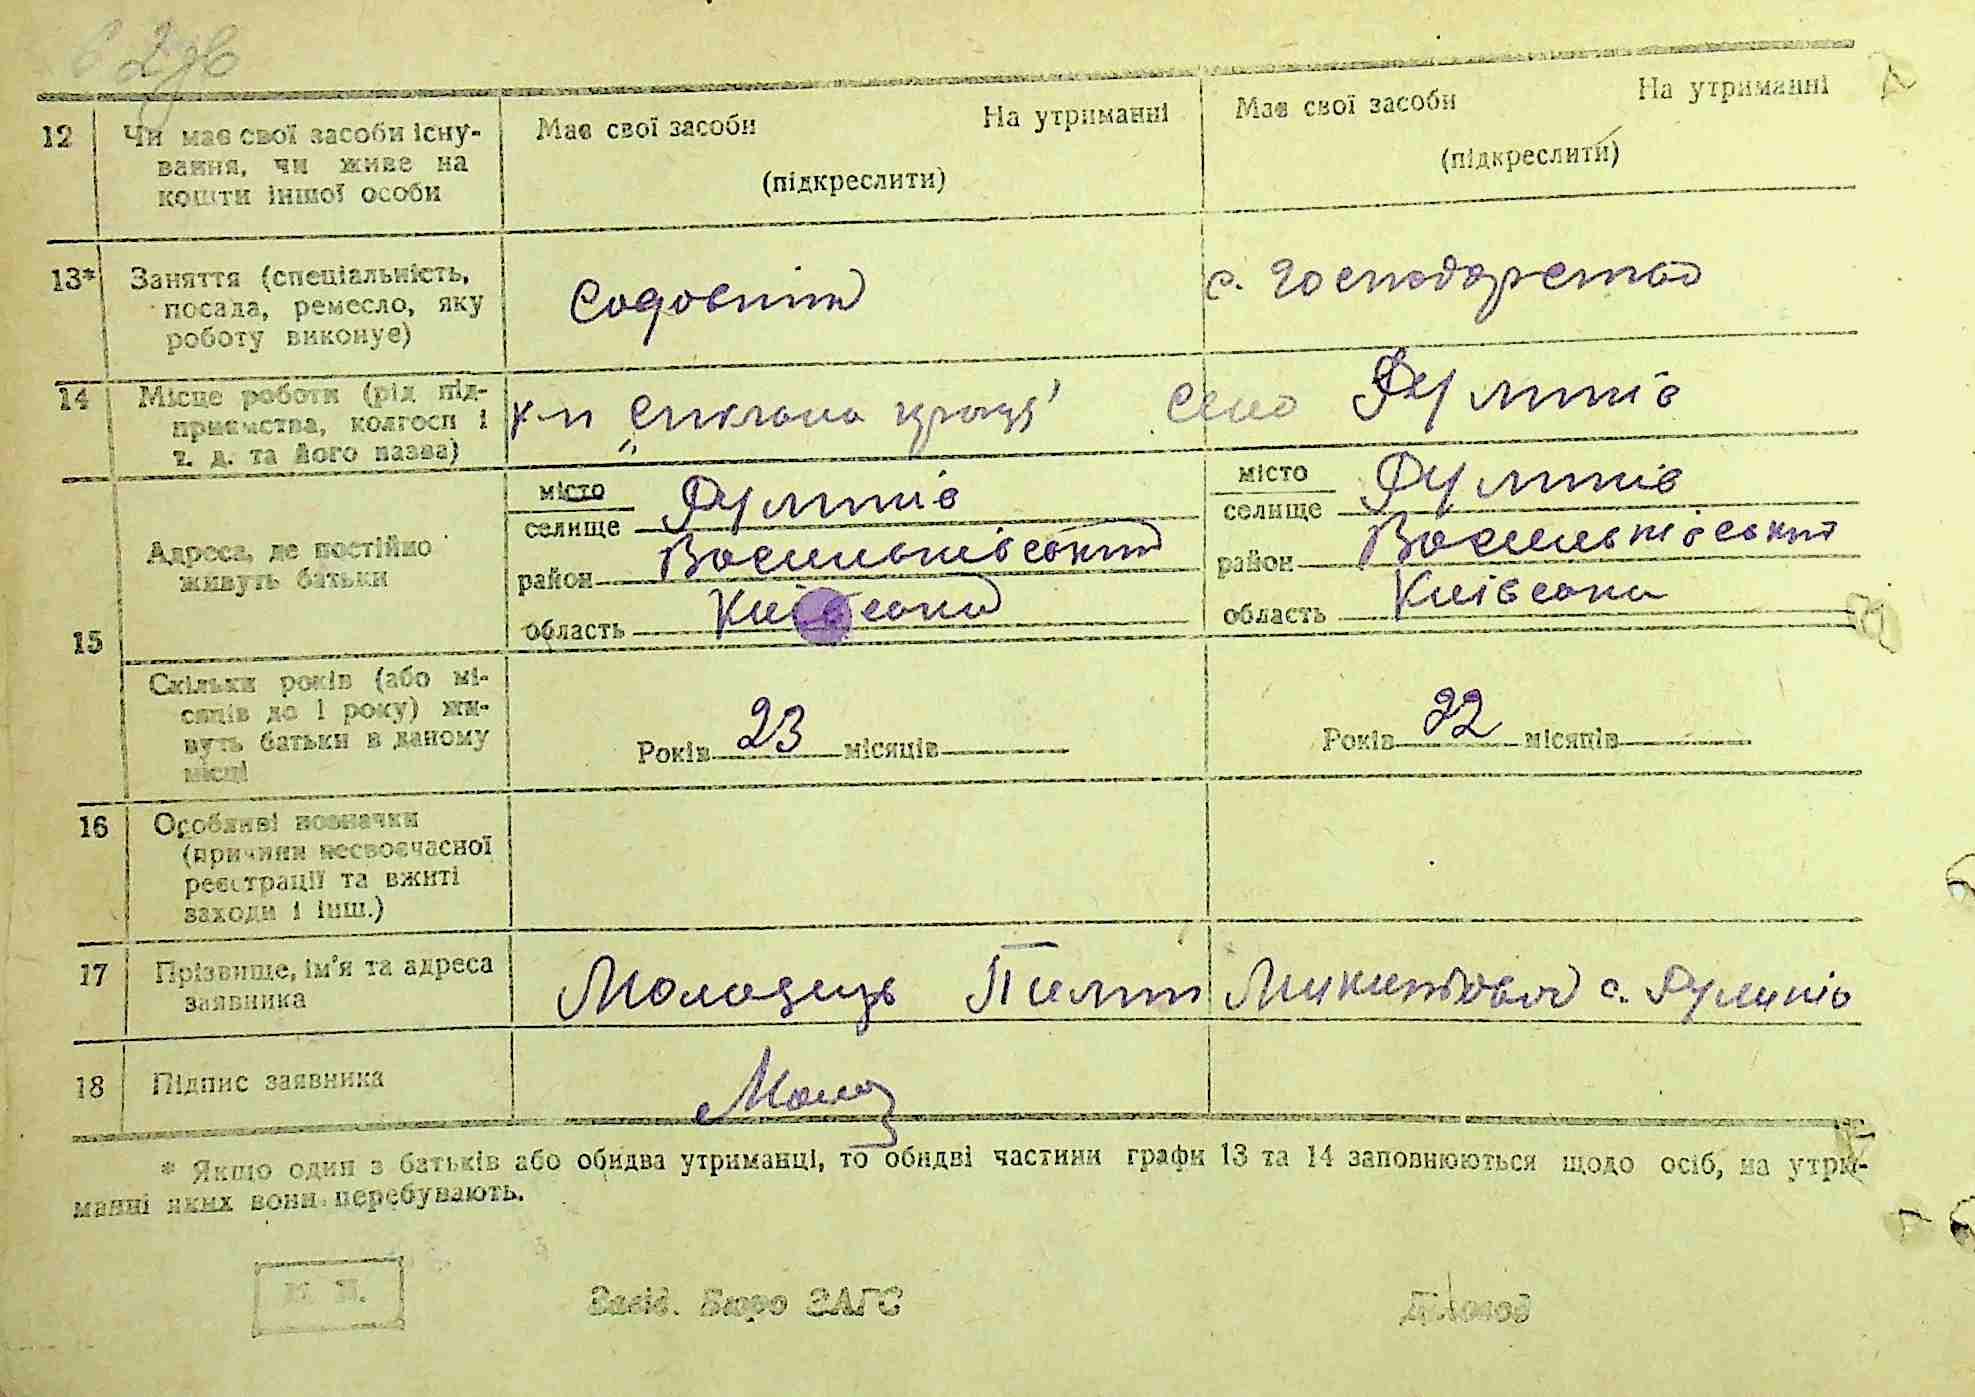 12 Чи має свої засоби існу- Має свої засоби На утриманні Має свої засоби На утриманні
вання, чи живе на (підкреслити) (підкреслити)
кошти іншої особи
13* Заняття (спеціальність, Садовник с. господарство
посада, ремесло, яку
роботу виконує)
14 Місце роботи (рід під- к-п праця" село Руликів
приємства, колгосп і
т. д. та його назва)
15 Адреса, де постійно
живуть батьки
місто місто
селище Руликів селище Руликів
район Васильківський район Васильківський
область Київська область Київська
Скільки років (або мі-
сяців до 1 року) жи-
вуть батьки в даному
місці
Років 23 місяців Років 22 місяців
16 Особливі позначки
(причини несвоєчасної
реєстрації та вжиті
заходи і інш.)
17 Прізвище, ім'я та адреса Молодець Пилип Микитович с. Руликів
заявника
18 Підпис заявника Молод
* Якщо один з батьків або обидва утриманці, то обидві частини графи 13 та 14 заповнюються щодо осіб, на утри-
манні яких вони перебувають.
М. П. Завід. Бюро ЗАГС Діловод